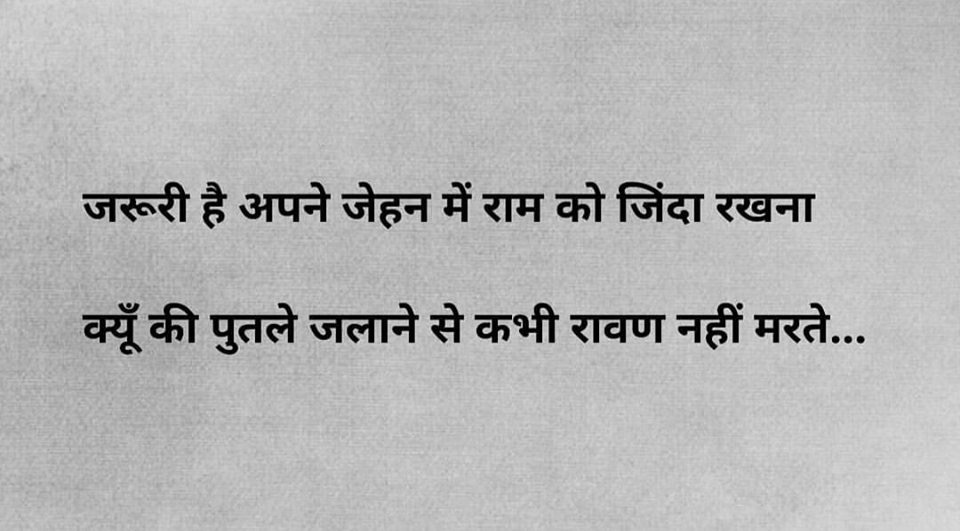 जरूरी है अपने जेहन में राम को जिंदा रखना
क्यूँ की पुतले जलाने से कभी रावण नहीं मरते...